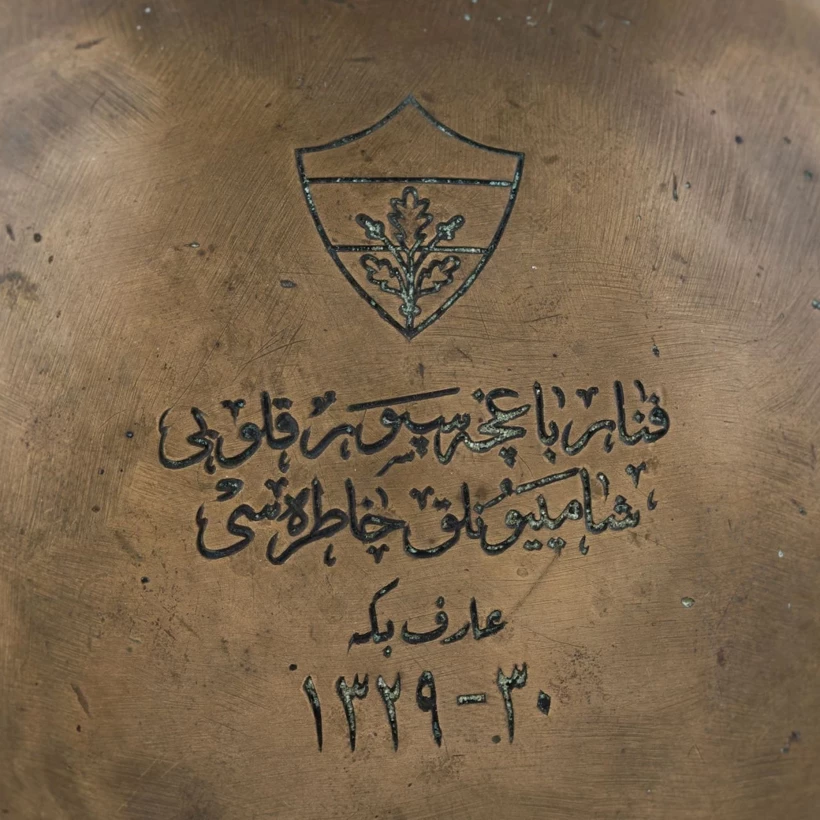 فنار باغچه سپور قلوبی
شامپیونلق خاطره سی
عارف بكه
١٣٢٩-٣٠